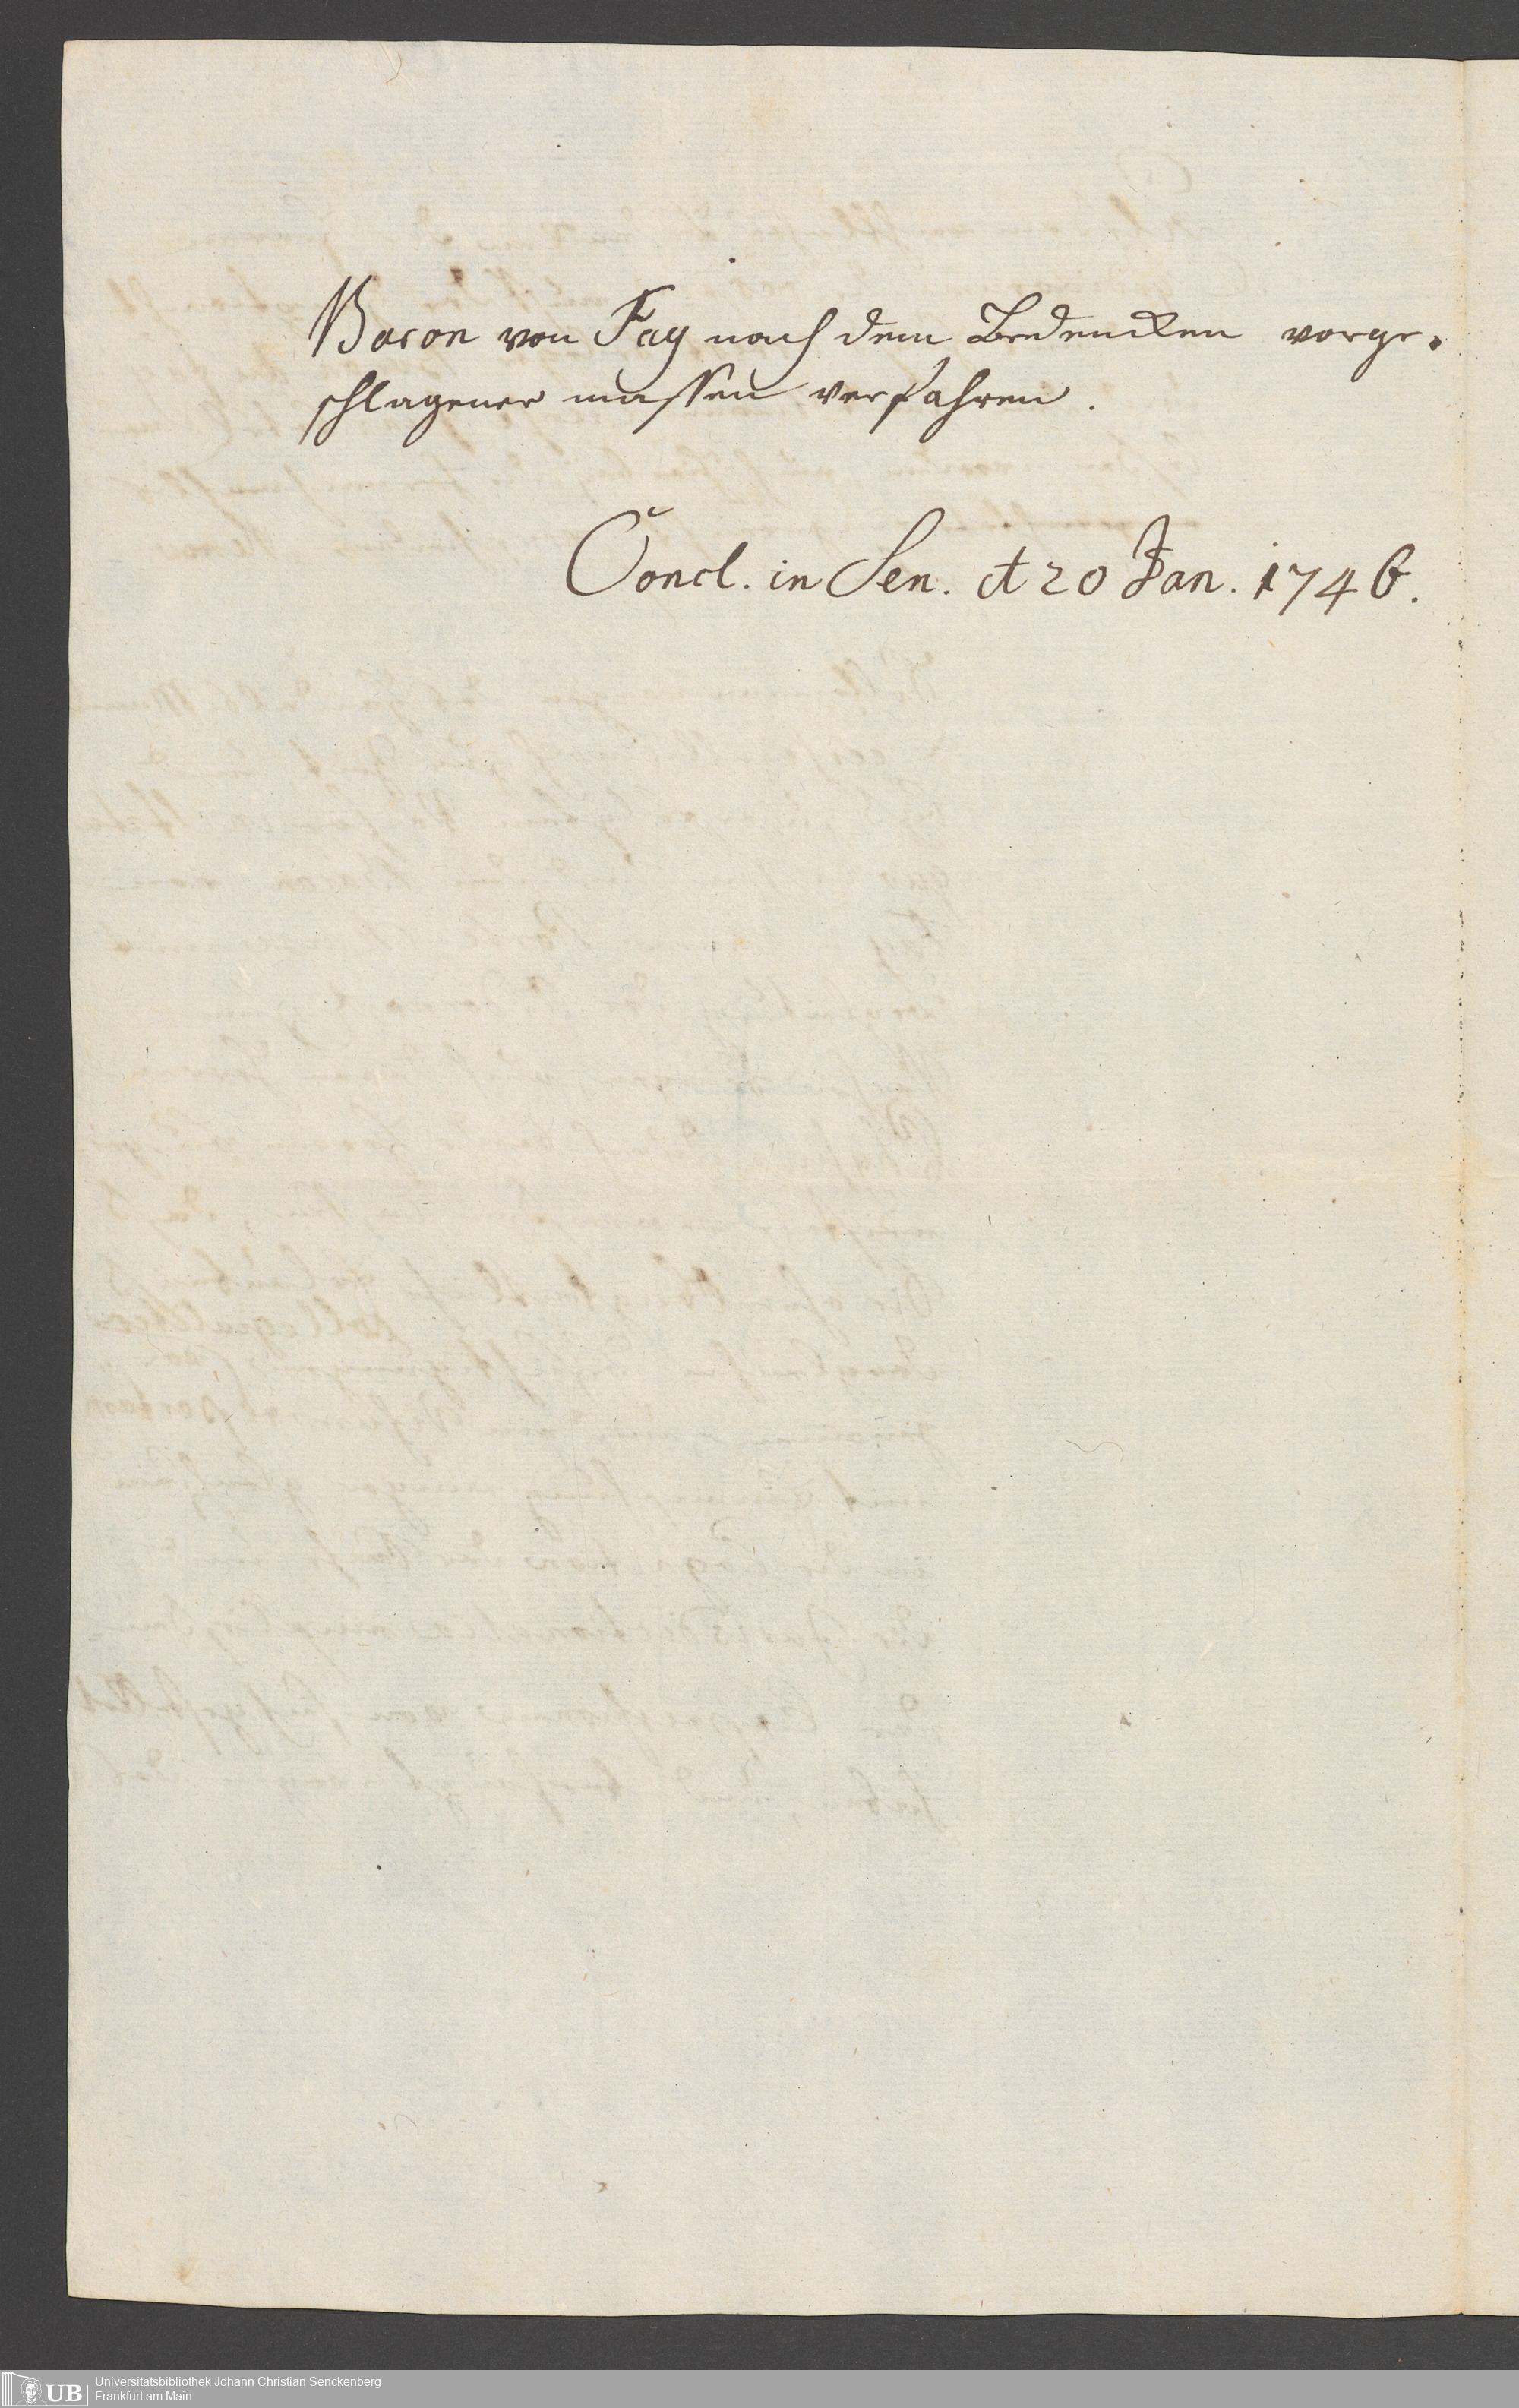 Baron von Fay nach dem Bedencken vorge-
schlagener massen verfahren.
Concl. in Sen. ct 20 Jan. 1746.
UB
Universitätsbibliothek Johann Christian Senckenberg
Frankfurt am Main